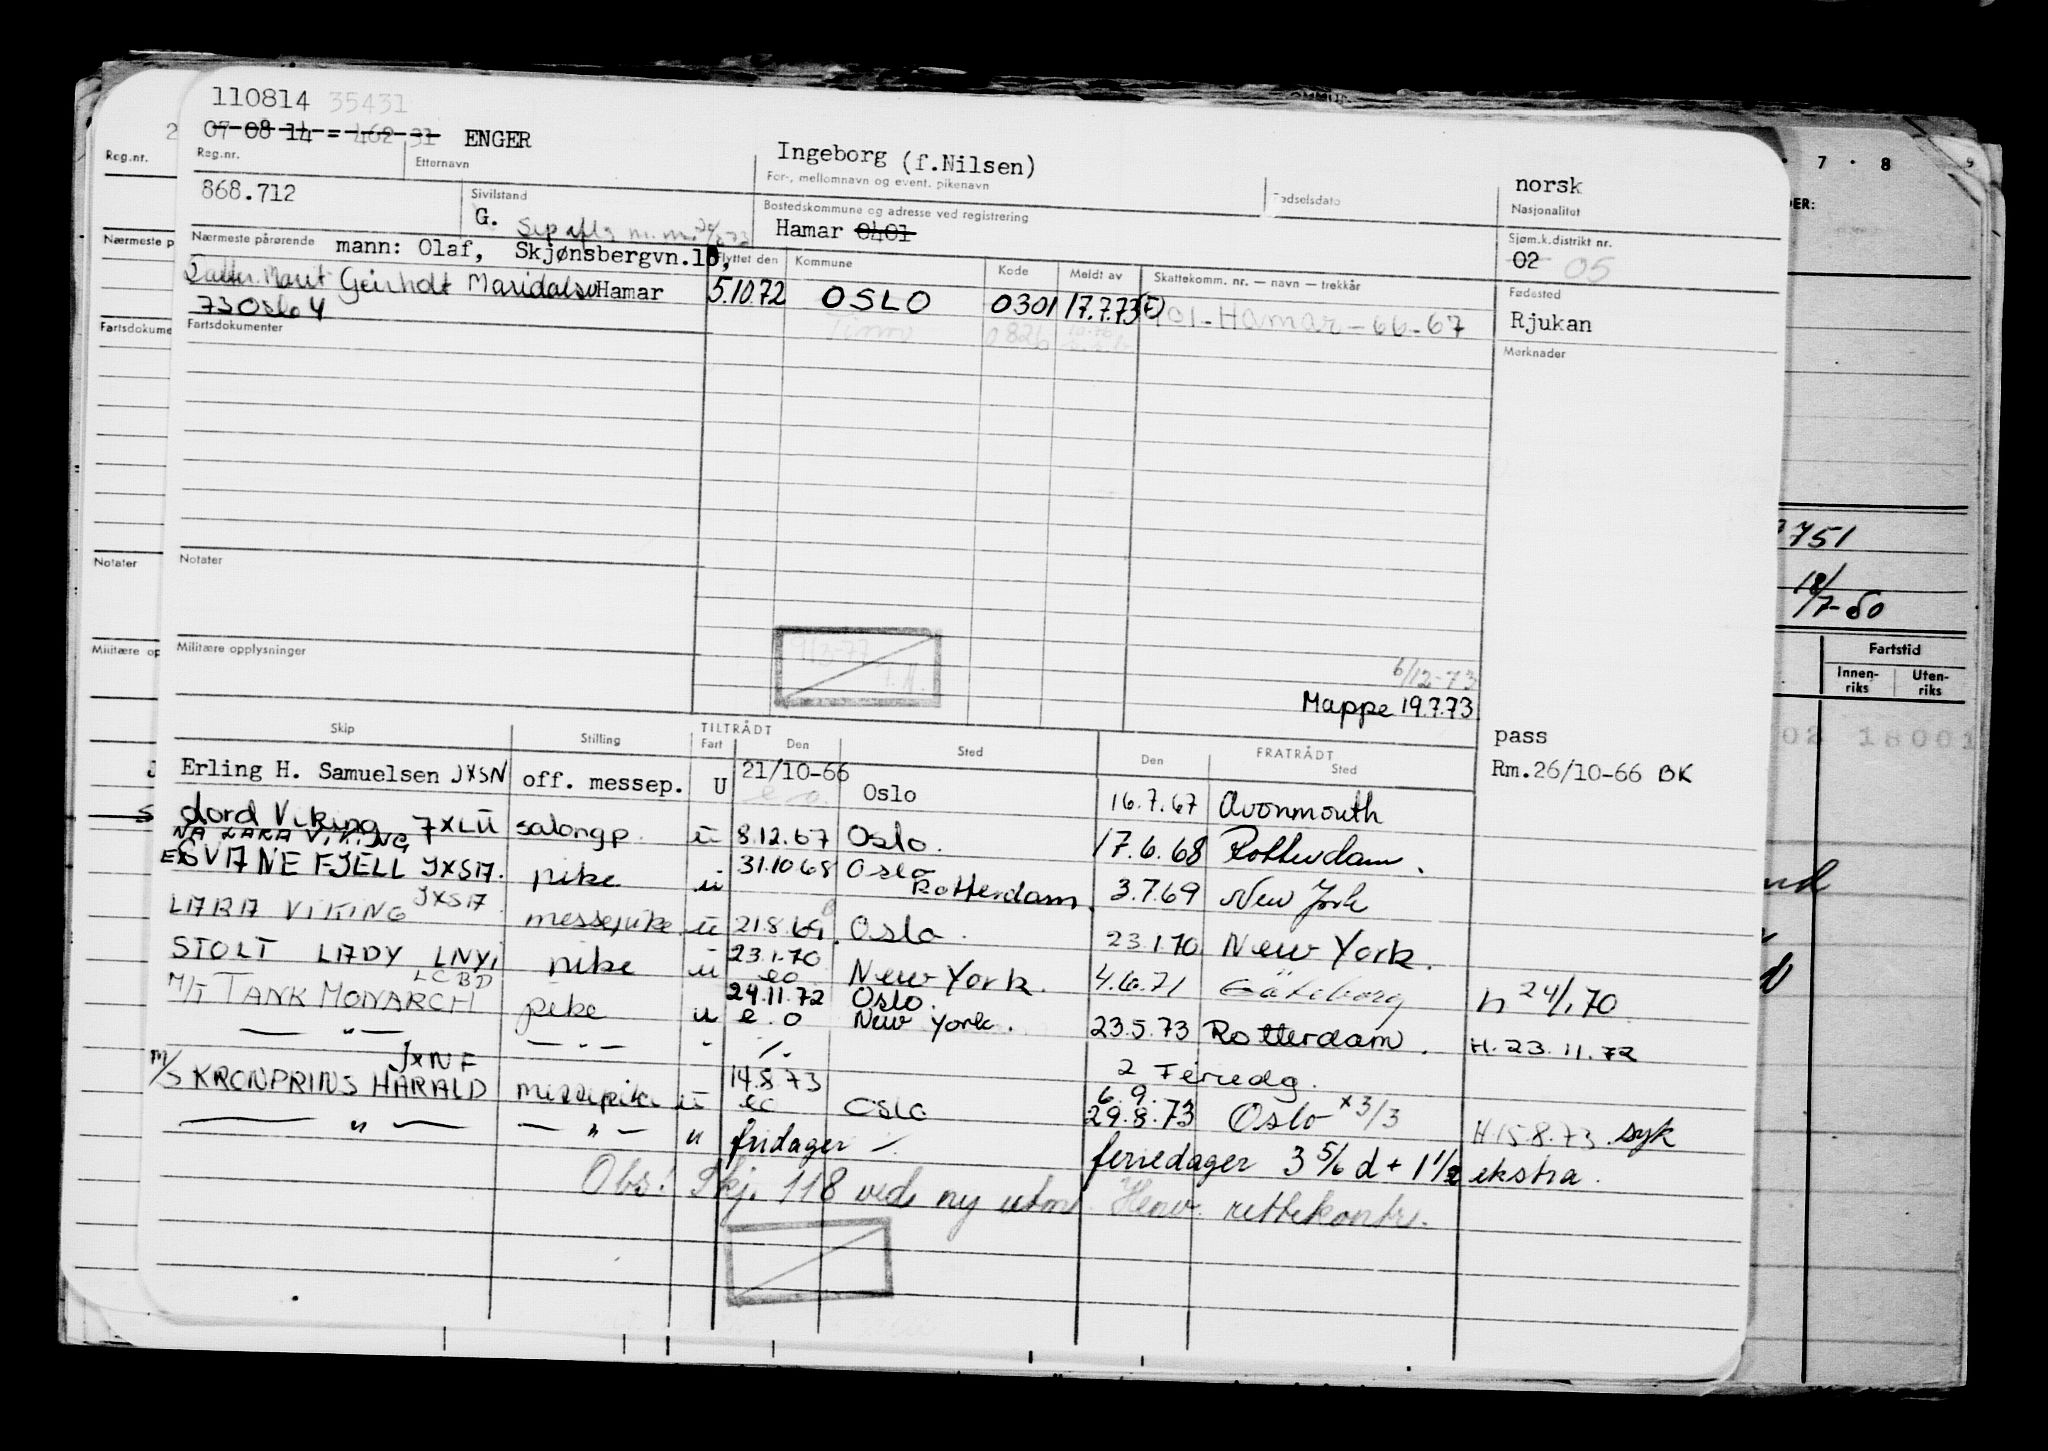 110814 35431
07-08 14 = 462 31 ENGER
Ingeborg (f.Nilsen)
norsk
Reg.nr. Etternavn For-, mellomnavn og event. pikenavn Fødselsdato Nasjonalitet
868.712 Sivilstand G. m.m.
Bostedskommune og adresse ved registrering
Hamar 0401
Sjøm.k.distrikt nr.
02 05
Nærmeste pårørende mann: Olaf, Skjønsbergvn.18,
Hamar
Datter Marit Geirholt Maridalsv
73 Oslo 4
Flyttet den Kommune Kode Meldt av Skattekomm. nr. — navn — trekkår
5.10.72 OSLO 0301 17.7.73 401-Hamar-66-67
0826
Fødested
Rjukan
Fartsdokumenter
Merknader
Notater
Militære opplysninger
6/12-73
Mappe 19.7.73
pass
Rm.26/10-66 BK
Skip Stilling TILTRÅDT Fart Den Sted FRATRÅDT Den Sted
Erling H. Samuelsen JXSN off. messep. U 21/10-66 Oslo 16.7.67 Avonmouth
Lord Viking 7XLU salongp. u 8.12.67 Oslo. 17.6.68 Rotterdam.
NÅ LARA VIKING
EX SVANEFJELL JXSA. pike u 31.10.68 Oslo Rotterdam. 3.7.69 New York
LARA VIKING JXSA messepike u 21.8.69. Oslo. 23.1.70 New York.
STOLT LADY LNYI pike u 23.1.70 eo New York. 4.6.71 Göteborg h 24/1 70
M/T TANK MONARCH LCBD pike u 24.11.72 e.o Oslo. New York. 23.5.73 Rotterdam. H. 23.11.72
— " — — " — " /. 2 Feriedg.
M/S KRONPRINS HARALD JXNF messepike u 14.8.73 eo Oslo 6.9. 29.8.73 Oslo x3/3 H 15.8.73 syk
— " — — " — " fridager / feriedager 3 5/6 d + 1 1/2 ekstra.
Obs! Skj. 118 ved ny utm. Henv. rettekontr.
Reg.nr.
Nærmeste p
Fartsdokume
Notater
Militære op
7 · 8 9
DER:
751
18/7-60
Fartstid
Innen-riks Uten-riks
02 18001